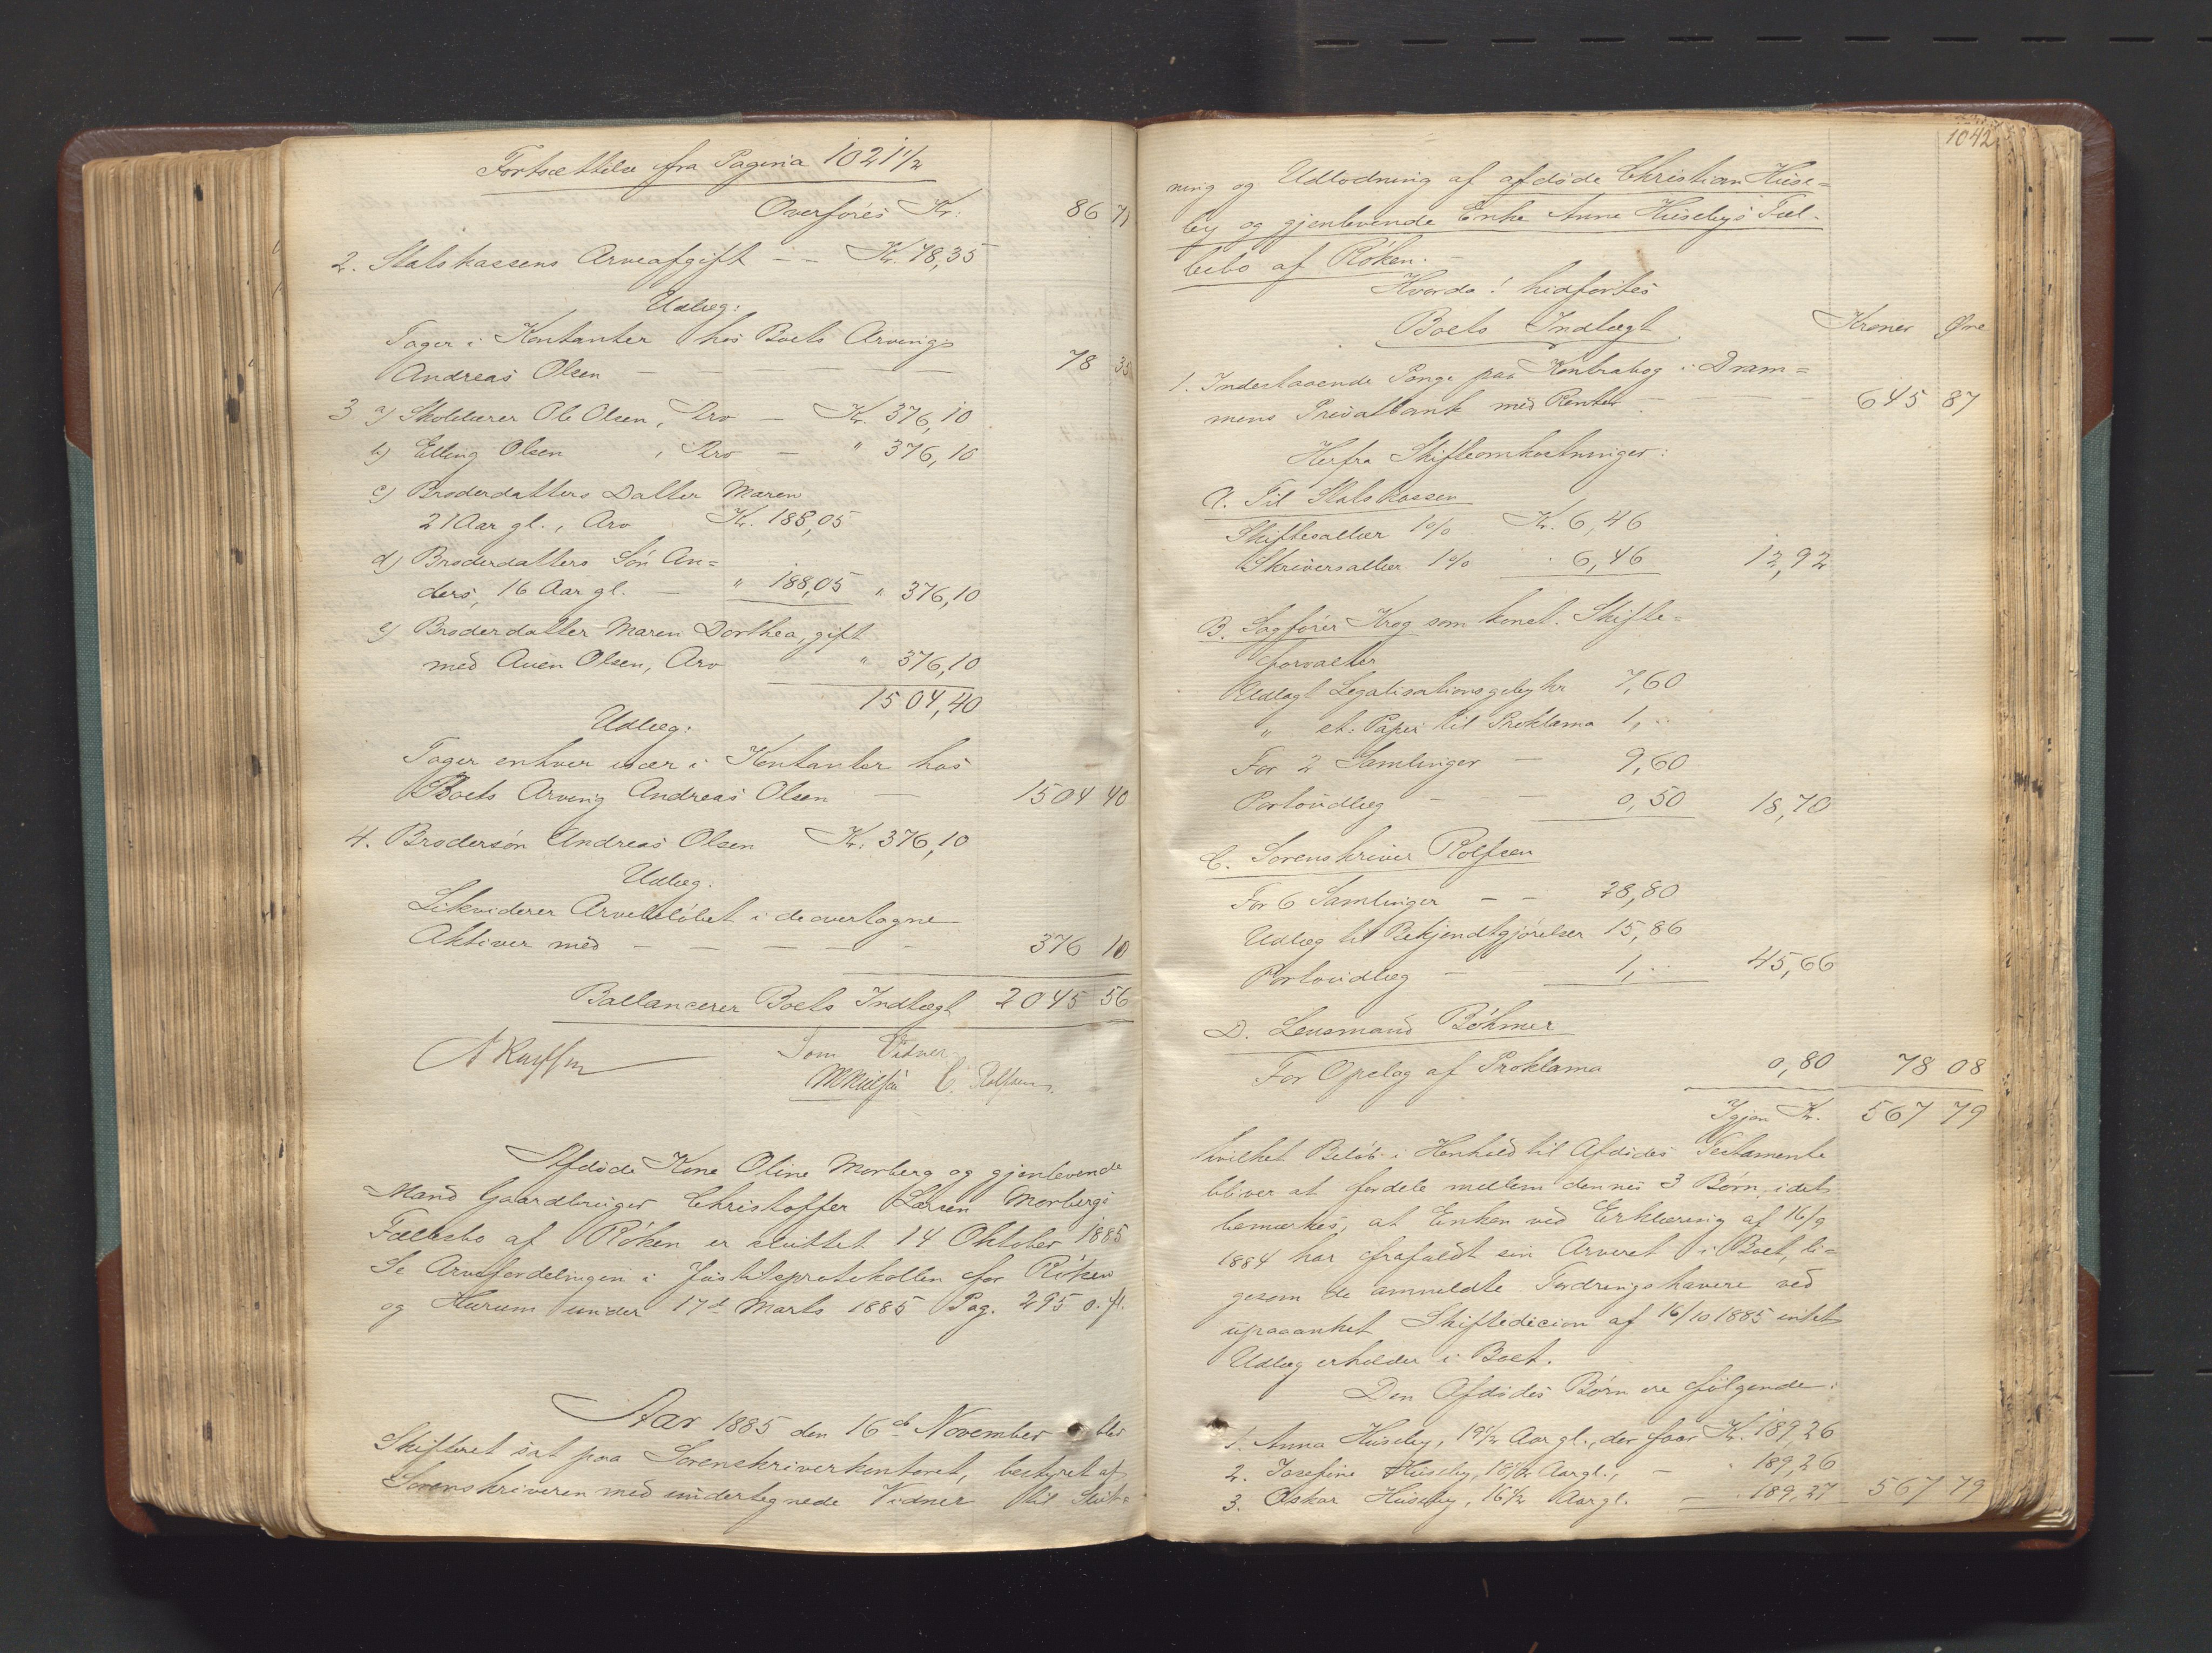 Fortsættelse fra Pagina 1021½
Overføres Kr: 86 71
2. Statskassens Arveafgift – – Kr. 78,35
Udlæg:
Tager i Kontanter hos Boets Arving
Andreas Olsen – – – – – 78 35
3 a) Skolelærer Ole Olsen, Arv – Kr. 376,10
b) Elling Olsen , Arv – " 376,10
c) Broderdatters Datter Maren
21 Aar gl., Arv Kr. 188,05
d) Broderdatters Søn An=
ders, 16 Aar gl. – " 188,05 " 376,10
e) Broderdatter Maren Dorthea, gift
med Auen Olsen, Arv " 376,10
1504,40
Udlæg:
Tager enhver især i Kontanter hos
Boets Arving Andreas Olsen – 1504 40
4. Brodersøn Andreas Olsen Kr. 376,10
Udlæg:
Likviderer Arvebeløbet i de overtagne
Aktiver med – – – – – 376 10
Ballancerer Boets Indtægt 2045 56
Som Vidner
C. Rolfsen.
Afdøde Kone Oline Morberg og gjenlevende
Mand Gaardbruger Christoffer Larsen Morbergs
Fællesbo af Røken er sluttet 14 Oktober 1885
Se Arvefordelingen i Justitsprotokollen for Røken
og Hurum under 17de Marts 1885 Pag. 295 o. fl.
Aar 1885 den 16de November blev
Skifteret sat paa Sorenskriverkontoret, bestyret af
Sorenskriveren med undertegnede Vidner til Slut=
1042
ning og Udlodning af afdøde Christian Huse=
by og gjenlevende Enke Anne Huseby's Fæl=
lesbo af Røken. –
Hvorda! hidførtes
Boets Indtægt Kroner Øre
1. Indestaaende Penge paa Kontrabog i Dram=
mens Privatbank med Renter – – – – 645 87
Herfra Skifteomkostninger:
A. Til Statskassen
Skiftesallær 1% Kr. 6,46
Skriversallær 1% " 6,46 12,92
B. Sagfører Krog som konst. Skifte=
forvalter
Udlagt Legalisationsgebyhr 7,60
" st: Papir til Proklama 1, "
For 2 Samlinger – 9,60
Portoudlæg – – 0,50 18,70
C. Sorenskriver Rolfsen
For 6 Samlinger – – 28,80
Udlæg til Bekjendtgjørelser 15,86
Portoudlæg – 1, " 45,66
D. Lensmand Bøhmer
For Opslag af Proklama 0,80 78 08
Igjen Kr. 567 79
hvilket Beløb i Henhold til Afdødes Testamente
bliver at fordele mellem dennes 3 Børn, idet
bemærkes, at Enken ved Erklæring af 16/9
1884 har frafaldt sin Arveret i Boet, li=
gesom de anmeldte Fordringshavere ved
upaaanket Skiftedicion af 16/10 1885 intet
Udlæg erholder i Boet.
Den Afdødes Børn ere følgende:
1. Anna Huseby, 19½ Aar gl., der faar Kr. 189,26
2. Josefine Huseby, 18½ Aar gl., – " 189,26
3. Oskar Huseby, 16½ Aar gl. – " 189,27 567 79